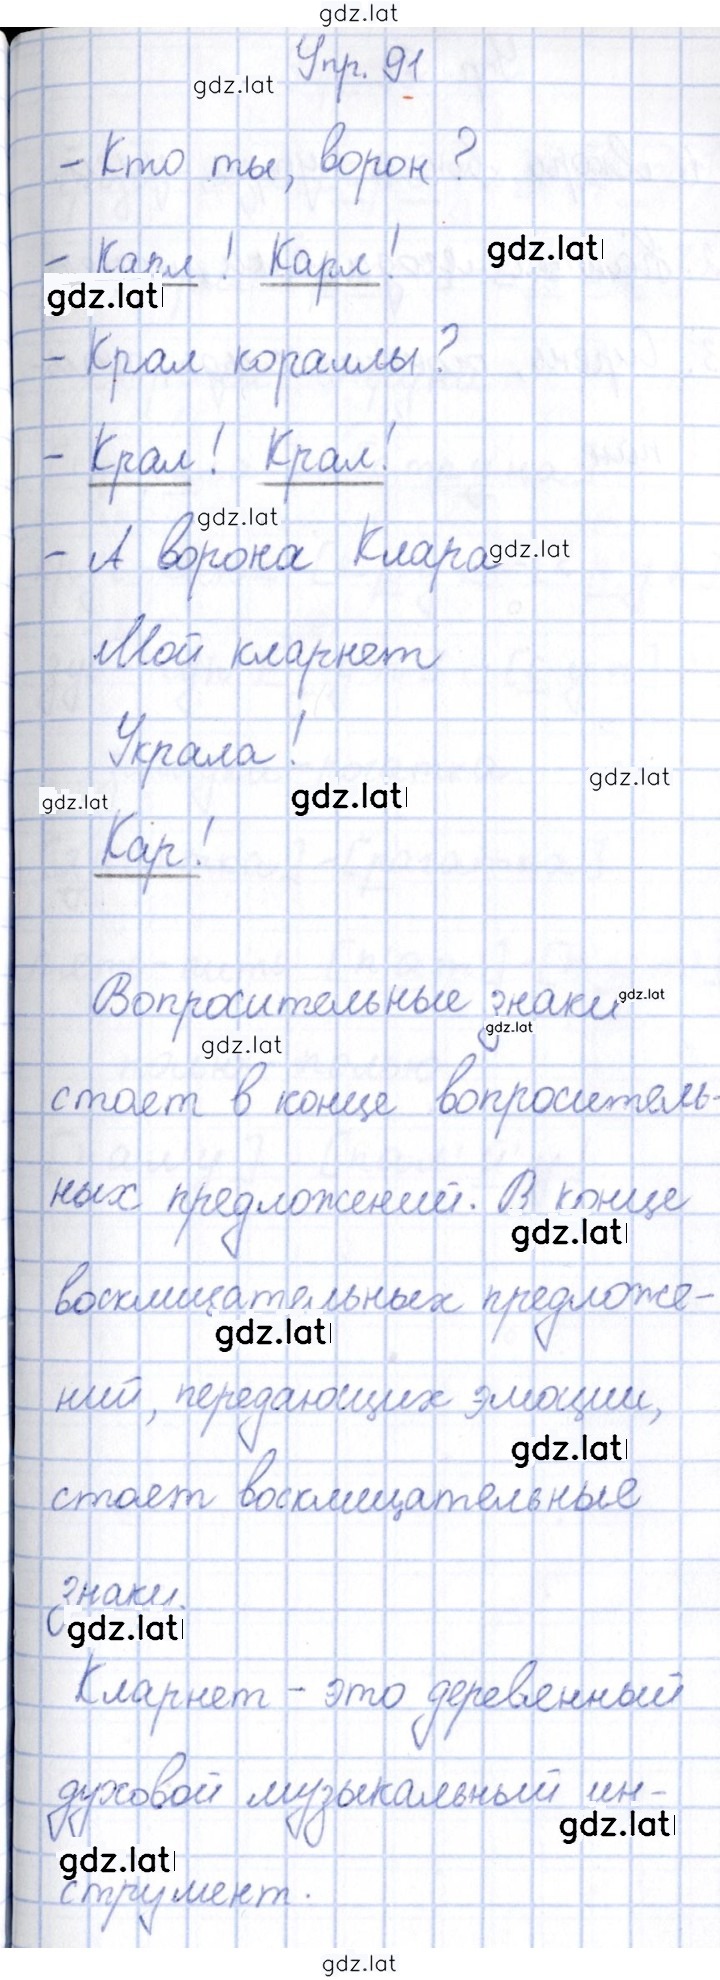 gdz.lat
Упр. 91
gdz.lat
- Кто ты, ворон?
- Карл! Карл!
gdz.lat
gdz.lat
- Крал кораллы?
- Крал! Крал!
gdz.lat
- А ворона Клара
gdz.lat
Мой кларнет
Украла!
gdz.lat
gdz.lat
gdz.lat
Кар!
Вопросительные знаки
gdz.lat
gdz.lat
gdz.lat
стоят в конце вопроситель-
ных предложений. В конце
gdz.lat
восклицательных предложе-
gdz.lat
ний, передающих эмоции,
gdz.lat
стоят восклицательные
знаки.
gdz.lat
Кларнет - это деревянный
духовой музыкальный ин-
gdz.lat
gdz.lat
струмент.
gdz.lat